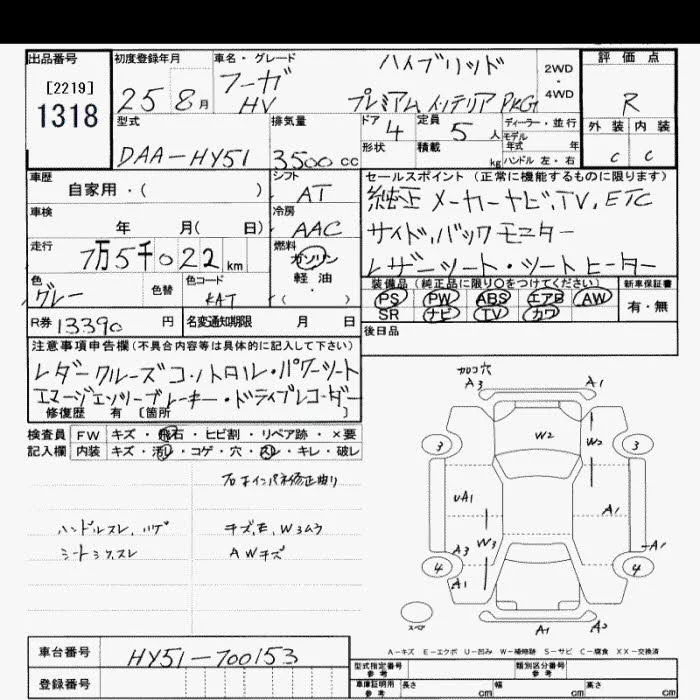 出品番号
[2219]
1318
初度登録年月
25 8月
車名・グレード
フーガ ハイブリッド
HV プレミアムインテリア PKG
2WD
・
4WD
評価点
R
外装 内装
C C
型式
DAA-HY51
排気量
3500cc
ドア
4
定員
5人
形状
積載
kg
ディーラー・並行
モデル
年式 年
ハンドル 左・右
車歴
自家用・( )
シフト
AT
車検
年 月( 日)
冷房
AAC
走行
7万5千022km
燃料
ガソリン
軽油
( ・ )
色
グレー
色替
色コード
KAT
R券 13390 円
名変通知期限 月 日
セールスポイント (正常に機能するものに限ります)
純正 メーカーナビ,TV,ETC
サイド,バックモニター
レザーシート・シートヒーター
装備品(純正品に限り○をつけてください)
PS PW ABS エアB AW
SR ナビ TV カワ
新車保証書
有・無
後日品
注意事項申告欄(不具合内容等は具体的に記入して下さい)
レダークルーズコントロル・パワーシート
エマージェンシーブレーキー・ドライブレコーダー
修復歴 有 〔箇所 〕
検査員
記入欄
FW キズ・飛石・ヒビ割・リペア跡・×要
内装 キズ・汚レ・コゲ・穴・スレ・キレ・破レ
ハンドルスレ、ハゲ
シートシワ、スレ
キズ,E,W3ムラ
AWキズ
カロコ穴
A3 A1
W2 W2
3 3
UA1 A1
A3 W3 A1
4 4
A1
スペア
A1 A2
A-キズ E-エクボ U-凹み W-補修跡 S-サビ C-腐食 XX-交換済
車台番号 HY51-700153
登録番号
型式指定番号
参考
類別区分番号
参考
車庫証明用
参考
長さ cm 幅 cm 高さ cm